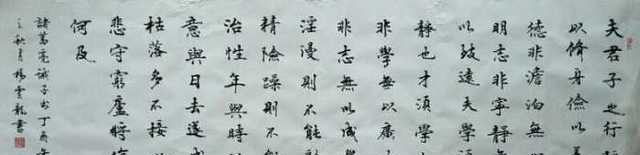 夫君子之行
以脩身儉以養
德非澹泊無
明志非寧靜
以致遠夫學
靜也才須學
非學無以廣
非志無以成
淫漫則不能
精險躁則不能
治性年與時
意與日去遂
枯落多不接
悲守窮廬將
何及
諸葛亮誡子書丁亥年
之秋月楊雲龍書